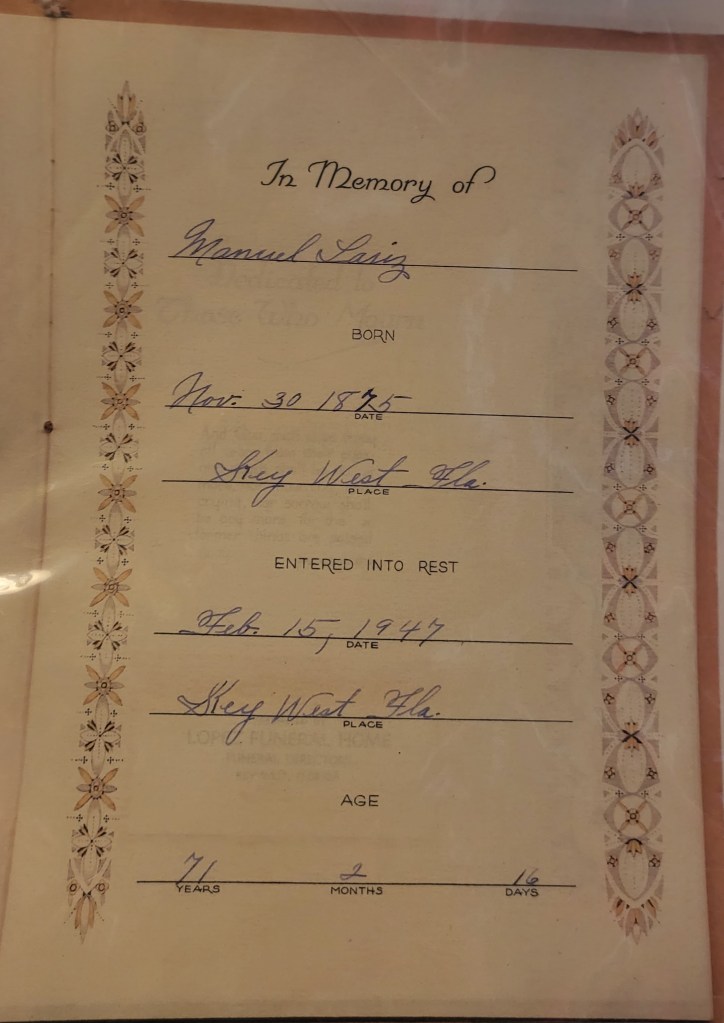 In Memory of
Manuel Lariz
BORN
Nov. 30 1875
DATE
Key West Fla.
PLACE
ENTERED INTO REST
Feb. 15, 1947
DATE
Key West Fla.
PLACE
AGE
71 2 16
YEARS MONTHS DAYS